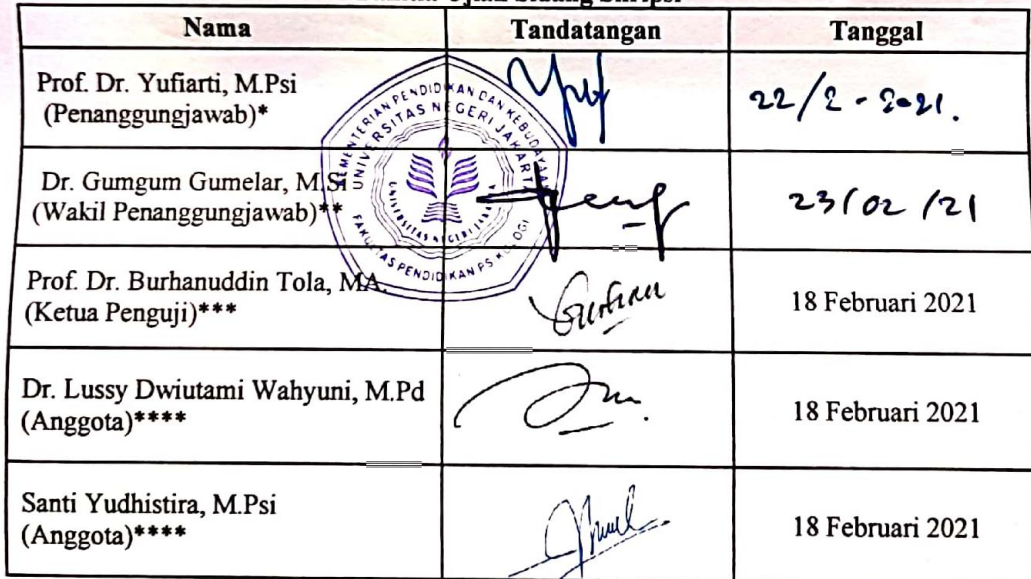 Ujian Sidang Skripsi
Nama Tandatangan Tanggal
Prof. Dr. Yufiarti, M.Psi
(Penanggungjawab)* 22/2 - 2021.
Dr. Gumgum Gumelar, M.Si
(Wakil Penanggungjawab)** 23/02/21
Prof. Dr. Burhanuddin Tola, MA.
(Ketua Penguji)*** 18 Februari 2021
Dr. Lussy Dwiutami Wahyuni, M.Pd
(Anggota)**** 18 Februari 2021
Santi Yudhistira, M.Psi
(Anggota)**** 18 Februari 2021
KEMENTERIAN PENDIDIKAN DAN KEBUDAYAAN
UNIVERSITAS NEGERI JAKARTA
UNIVERSITAS NEGERI JAKARTA
FAKULTAS PENDIDIKAN PSIKOLOGI